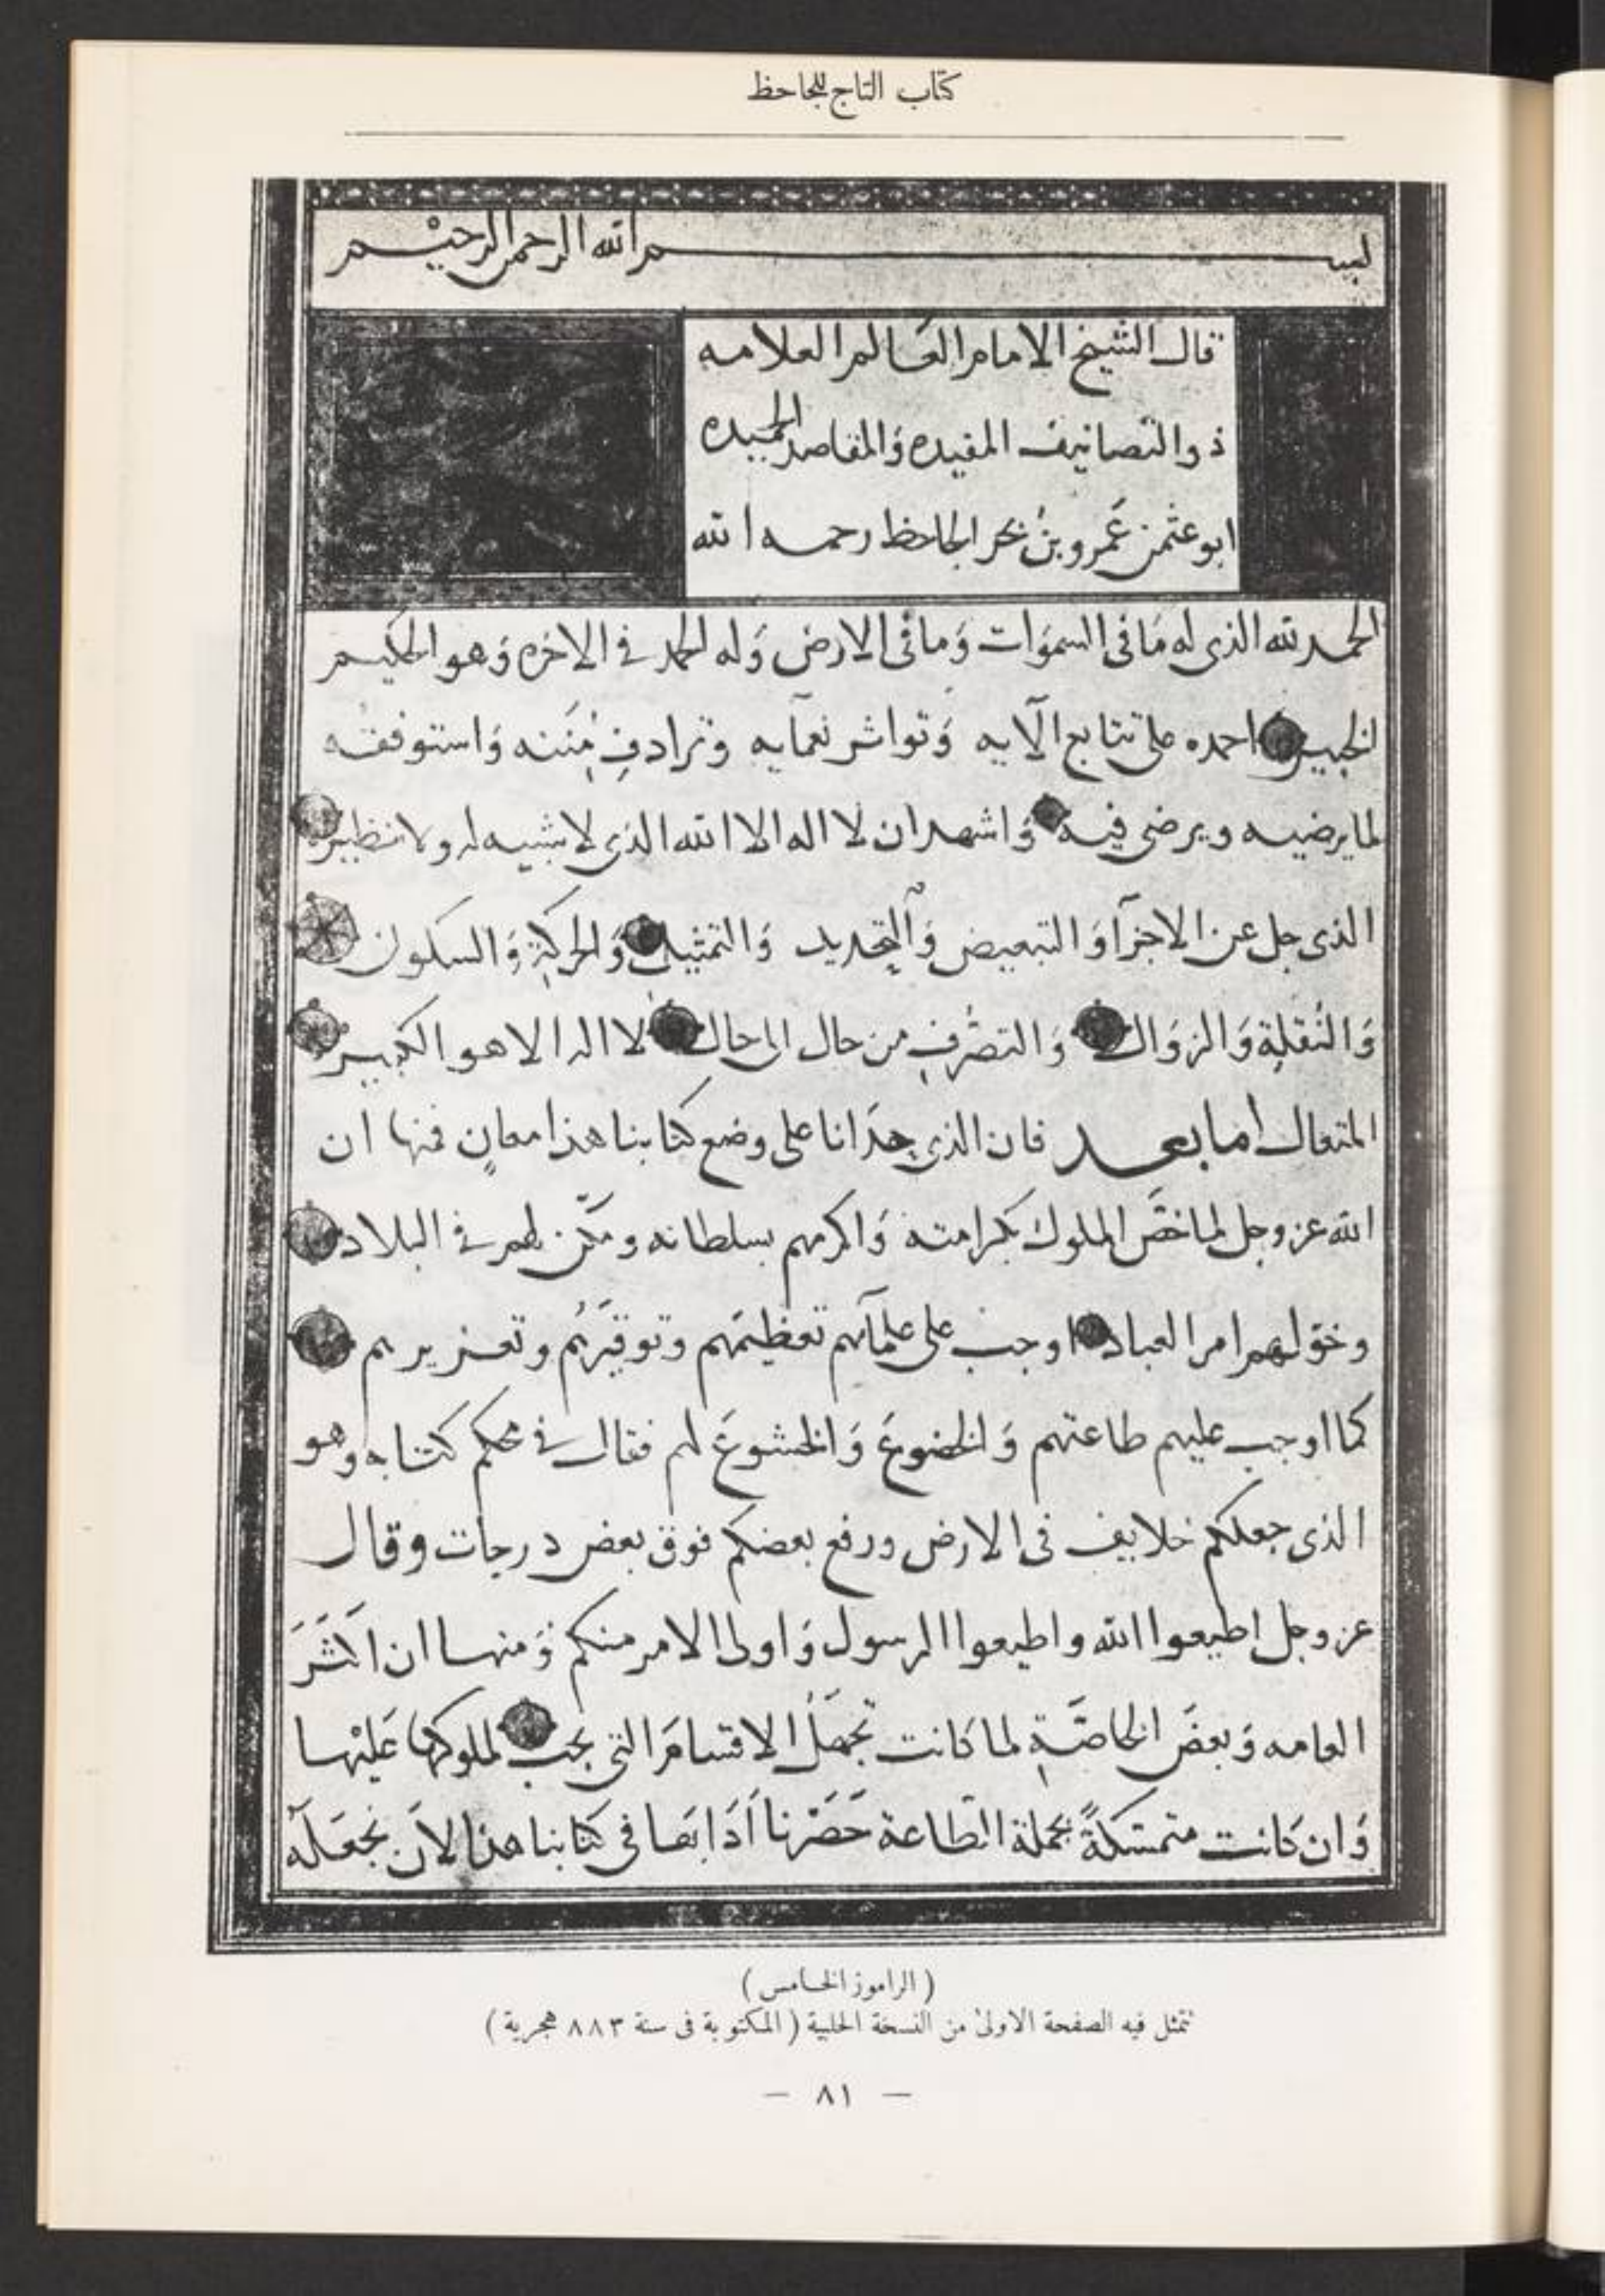 كتاب التاج للجاحظ
بسم الله الرحمن الرحيم
قال الشيخ الامام العالم العلامه
ذو التصانيف المفيده وَالمقاصد الحميده
ابو عثمن عَمرو بنُ بحر الجاحظ رحمه الله
الحمد لله الذى له مَا فى السموَات وَما فى الارض وَله الحمد في الاخره وَهو الحكيم
الخبير احمده على تتابع آلايه وَتواتر نعمآيه وترادفِ مِنَنه وَاستوفقه
لما يرضيه ويرضى فيه وَاشهد ان لا اله الا الله الذى لا شبيه له ولا نظير
الذى جل عن الاجزآ وَالتبعيض وَالتحديد وَالتمثيل وَالحركةِ وَالسكون
وَالنُقلةِ وَالزوَال وَالتصرُفِ من حال الى حال لا اله الا هو الكبير
المتعال اما بعد فان الذى حدَانا على وضع كتابنا هذا معانٍ فمنها ان
الله عز وجل لما خصَّ الملوك بكرامته وَاكرمهم بسلطانه ومكّن لهم في البلاد
وخوّلهم امر العباد اوجب على علمآئهم تعظيمَهم وتوقيرَهُم وتعزيرهم
كما اوجب عليهم طاعتهم وَالخضوعَ وَالخشوعَ لهم فقال في محكم كتابه وهو
الذى جعلكم خلايف فى الارض ورفع بعضكم فوق بعض درجات وقال
عز وجل اطيعوا الله واطيعوا الرسول وَاولى الامر منكم وَمنها ان اكثَرَ
العامه وَبعضَ الخاصَّةِ لما كانت تجهَلُ الاقسامَ التى تجب لملوكها عَليْها
وَان كانت متمسّكةً بجملة الطاعة حَصَرْنا آدَابَها فى كتابنا هذا لاَن نجعَلَهُ
(الراموز الخامس)
تتمثل فيه الصفحة الاولىٰ من النسخة الحلبية (المكتوبة فى سنة ٨٨٣ هجرية)
— ٨١ —